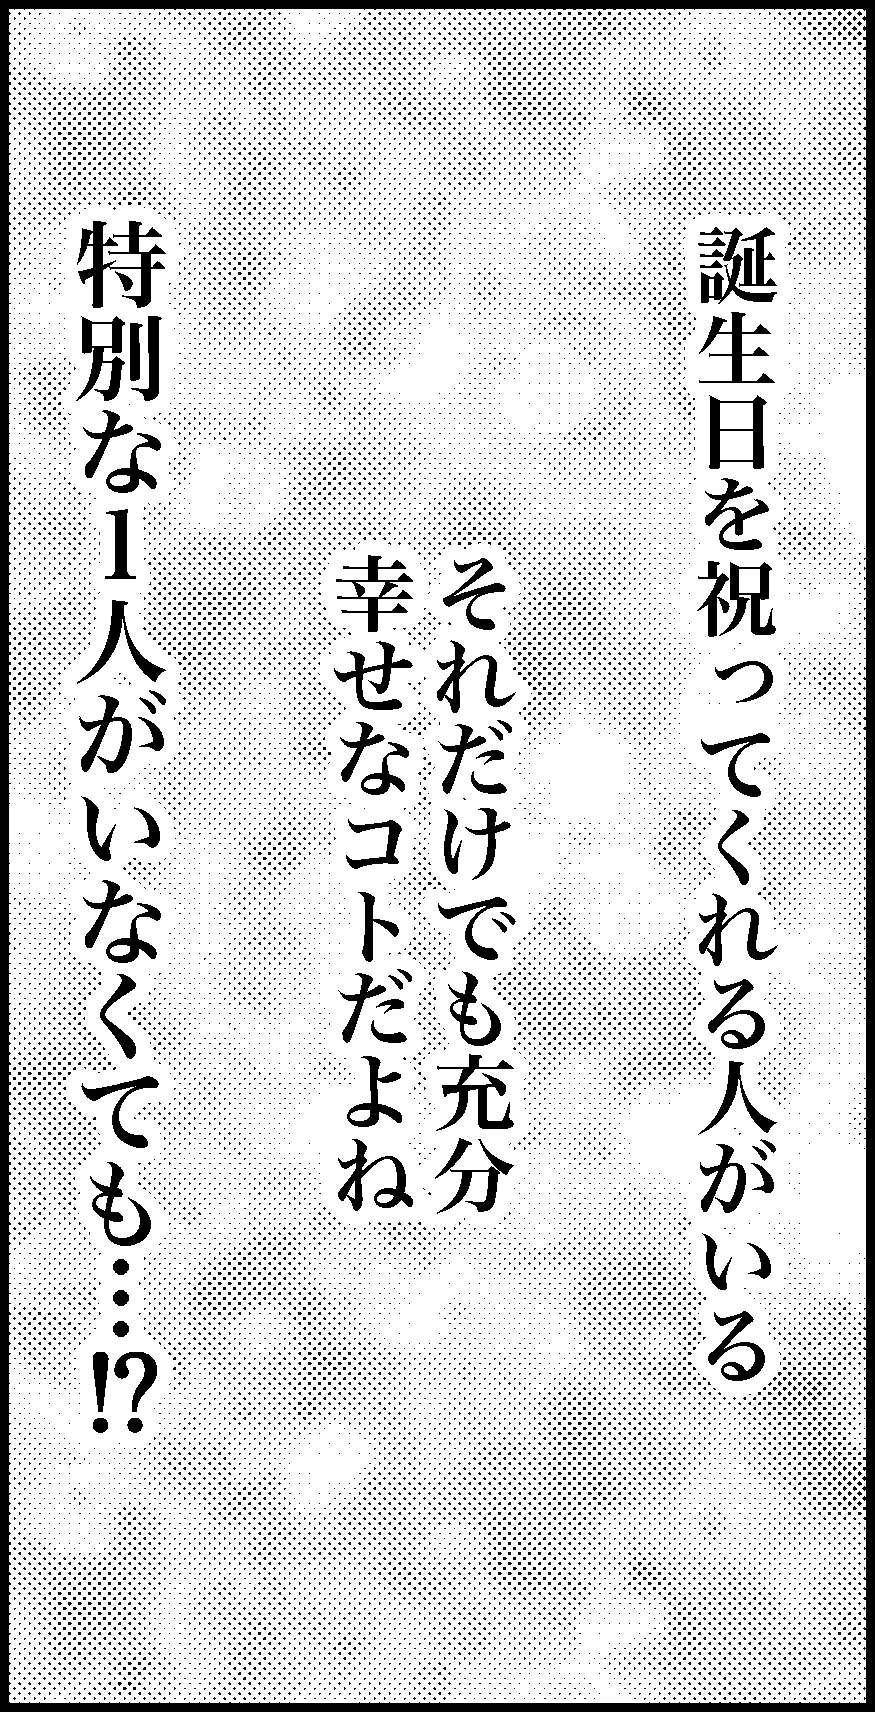 誕生日を祝ってくれる人がいる
それだけでも充分
幸せなコトだよね
特別な1人がいなくても…!?